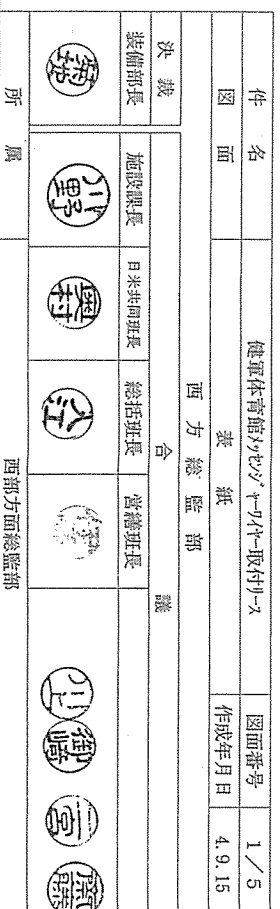 件名 健軍体育館メッセンジャーワイヤー取付リース 図面番号 1／5
図面 表紙 作成年月日 4.9.15
西方総監部
決裁 合議
装備部長 施設課長 日米共同班長 総括班長 営繕班長
川野 奥村 入江
川上 御﨑 二宮
所属 西部方面総監部